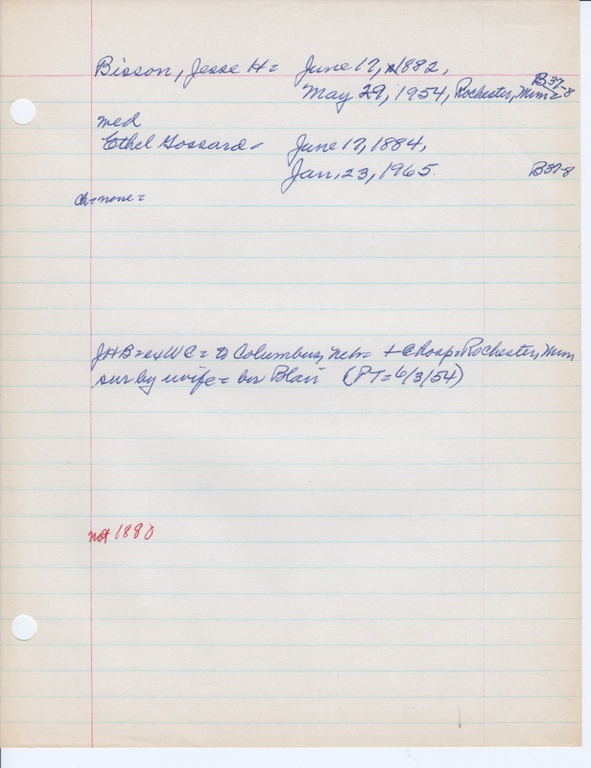 Bisson, Jesse H = June 17, 1882,
May 29, 1954, Rochester, Minn = B37-8
med
Ethel Gossard = June 17, 1884,
Jan, 23, 1965. B37-8
ch = none =
JHB = ex WC = to Columbus, Neb = + @ hosp = Rochester, Minn
sur by wife = bur Blair (PT = 6/3/54)
not 1880